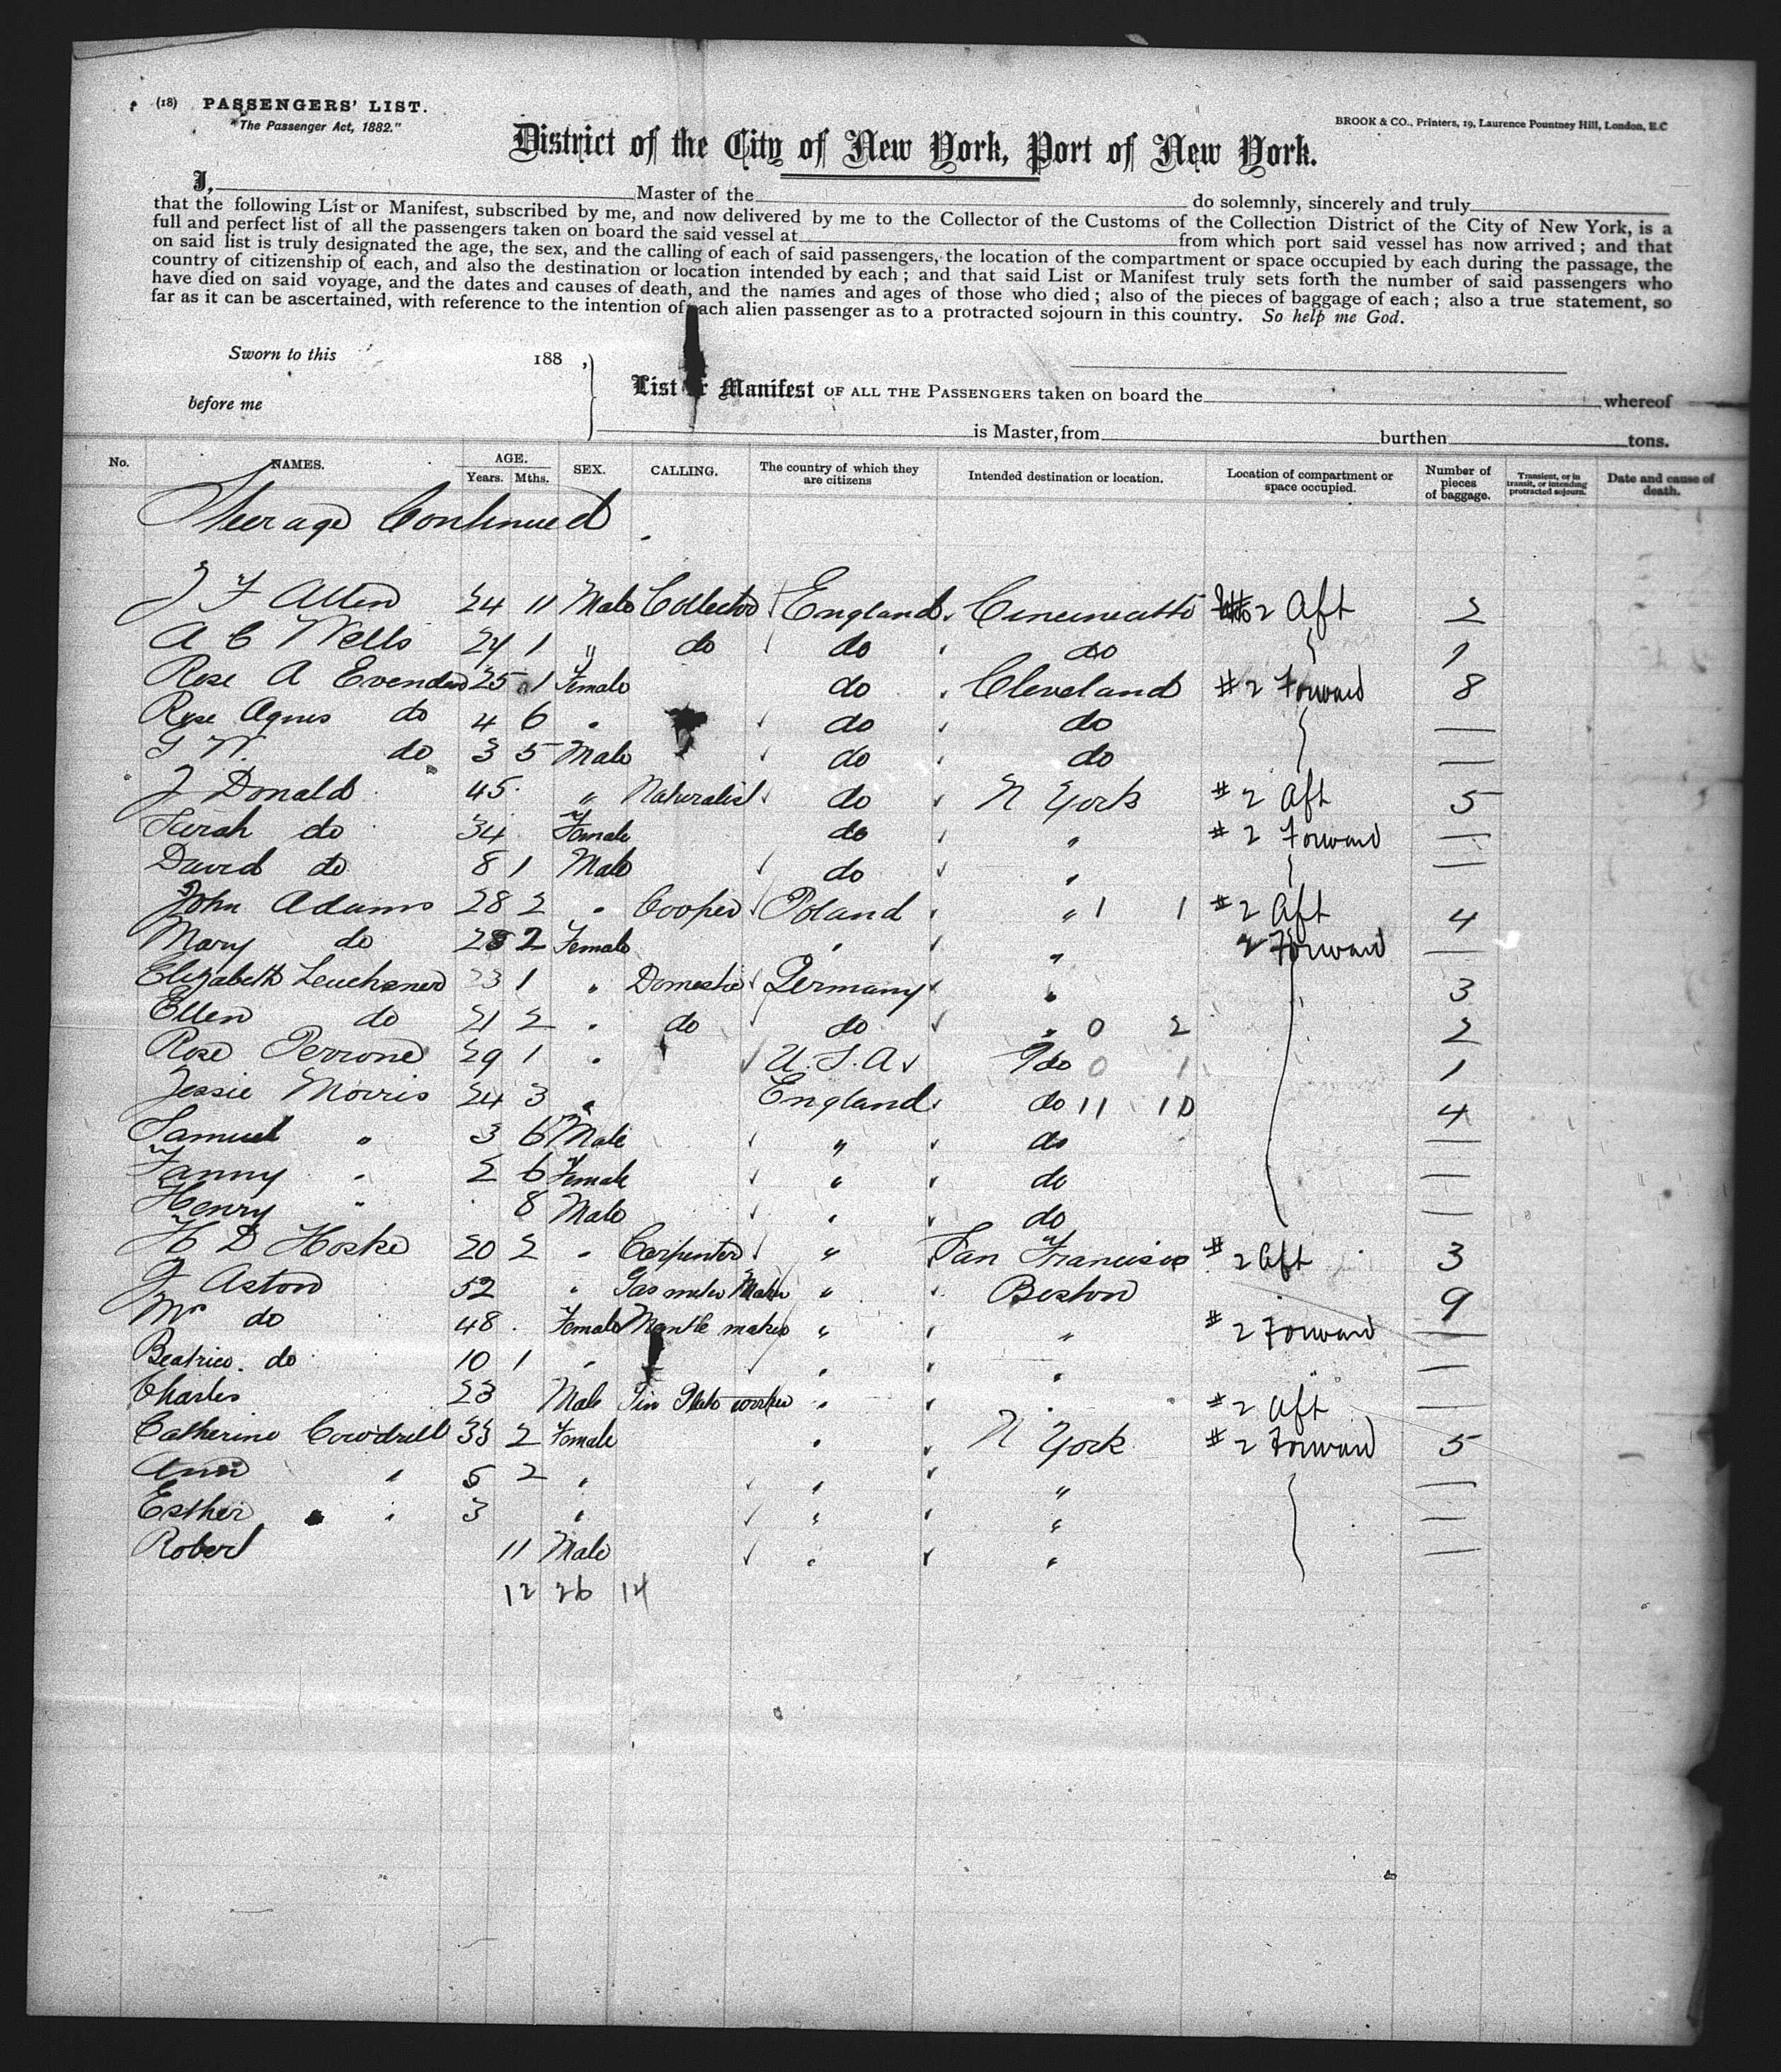 (18) PASSENGERS' LIST.
"The Passenger Act, 1882."
BROOK & CO., Printers, 19, Laurence Pountney Hill, London, E.C
District of the City of New York, Port of New York.
I, Master of the do solemnly, sincerely and truly
that the following List or Manifest, subscribed by me, and now delivered by me to the Collector of the Customs of the Collection District of the City of New York, is a
full and perfect list of all the passengers taken on board the said vessel at from which port said vessel has now arrived; and that
on said list is truly designated the age, the sex, and the calling of each of said passengers, the location of the compartment or space occupied by each during the passage, the
country of citizenship of each, and also the destination or location intended by each; and that said List or Manifest truly sets forth the number of said passengers who
have died on said voyage, and the dates and causes of death, and the names and ages of those who died; also of the pieces of baggage of each; also a true statement, so
far as it can be ascertained, with reference to the intention of each alien passenger as to a protracted sojourn in this country. So help me God.
Sworn to this 188 ,
before me
List or Manifest OF ALL THE PASSENGERS taken on board the whereof
is Master, from burthen tons.
No. NAMES. AGE. Years. Mths. SEX. CALLING. The country of which they are citizens Intended destination or location. Location of compartment or space occupied. Number of pieces of baggage. Transient, or in transit, or intending protracted sojourn. Date and cause of death.
Steerage Continued
J F Allen 24 11 Male Collector England Cincinnatti 2 Aft 2
A C Wells 24 1 " do do do 1
Rose A Evenden 25 1 Female do Cleveland #2 Forward 8
Rose Agnes do 4 6 " do do —
G W. do 3 5 Male do do —
J Donald 45 " Naturalist do N York #2 Aft 5
Sarah do 34 Female do " #2 Forward —
David do 8 1 Male do " —
John Adams 28 2 " Cooper Poland " 1 1 #2 Aft 4
Mary do 28 2 Female " " 2 Forward —
Elizabeth Leuchsner 23 1 " Domestic Germany " 3
Ellen do 21 2 " do do " 0 2 2
Rose Perrone 29 1 " U.S.A do 0 1 1
Jessie Morris 24 3 " England do 11 10 4
Samuel " 3 6 Male " do —
Fanny " 2 6 Female " do —
Henry " 8 Male " do —
H D Hoske 20 2 " Carpenter " San Francisco #2 Aft 3
J Aston 52 " Gas meter Maker " Boston 9
Mrs do 48 Female Mantle maker " " #2 Forward —
Beatrice. do 10 1 " " " " —
Charles 23 Male Tin Plate worker " " #2 Aft —
Catherine Cowdrell 33 2 Female " N York #2 Forward 5
Ann " 5 2 " " " —
Esther " 3 " " " —
Robert 11 Male " " —
12 26 14